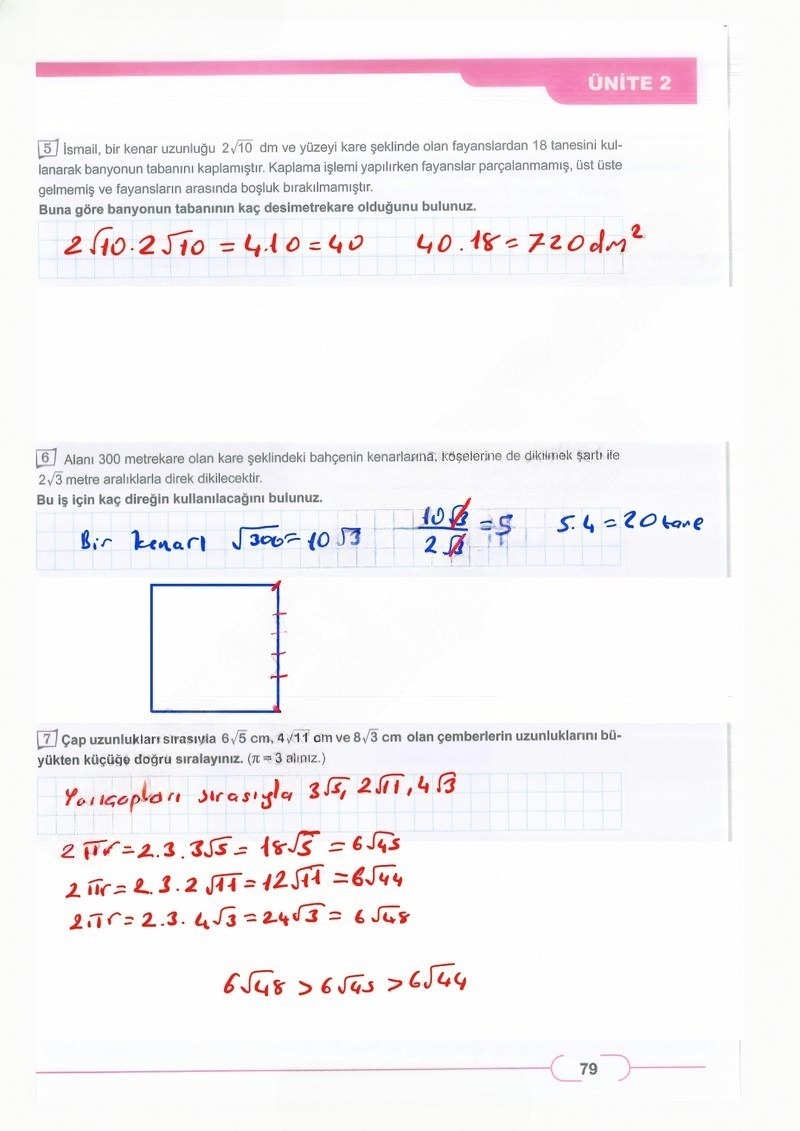 ÜNİTE 2
5 İsmail, bir kenar uzunluğu 2√10 dm ve yüzeyi kare şeklinde olan fayanslardan 18 tanesini kul-
lanarak banyonun tabanını kaplamıştır. Kaplama işlemi yapılırken fayanslar parçalanmamış, üst üste
gelmemiş ve fayansların arasında boşluk bırakılmamıştır.
Buna göre banyonun tabanının kaç desimetrekare olduğunu bulunuz.
2√10.2√10 = 4.10 = 40 40.18 = 720 dm²
6 Alanı 300 metrekare olan kare şeklindeki bahçenin kenarlarına, köşelerine de dikilmek şartı ile
2√3 metre aralıklarla direk dikilecektir.
Bu iş için kaç direğin kullanılacağını bulunuz.
Bir kenarı √300 = 10√3 10√3 / 2√3 = 5 5.4 = 20 tane
7 Çap uzunlukları sırasıyla 6√5 cm, 4√11 cm ve 8√3 cm olan çemberlerin uzunluklarını bü-
yükten küçüğe doğru sıralayınız. (π = 3 alınız.)
Yarıçapları sırasıyla 3√5, 2√11, 4√3
2πr = 2.3.3√5 = 18√5 = 6√45
2πr = 2.3.2√11 = 12√11 = 6√44
2πr = 2.3.4√3 = 24√3 = 6√48
6√48 > 6√45 > 6√44
79